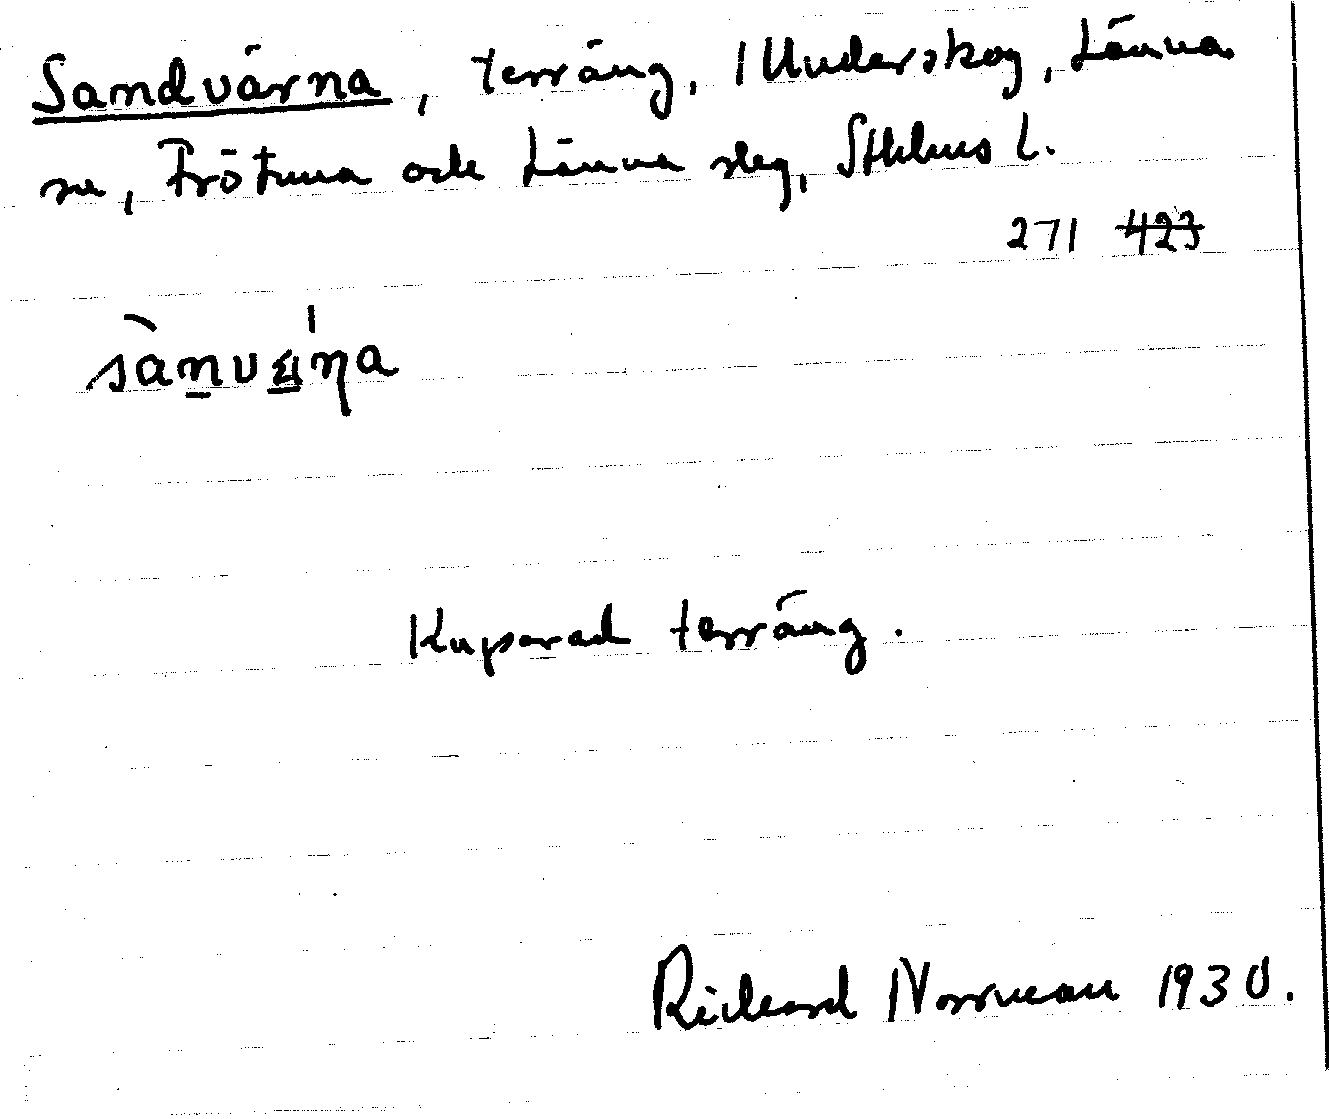 Sandvärna, terräng, 1 Underskog, Länna
sn, Frötuna och Länna slg, Sthlms l.
271 423
Kuperad terräng.
Rickard Norrman 1930.